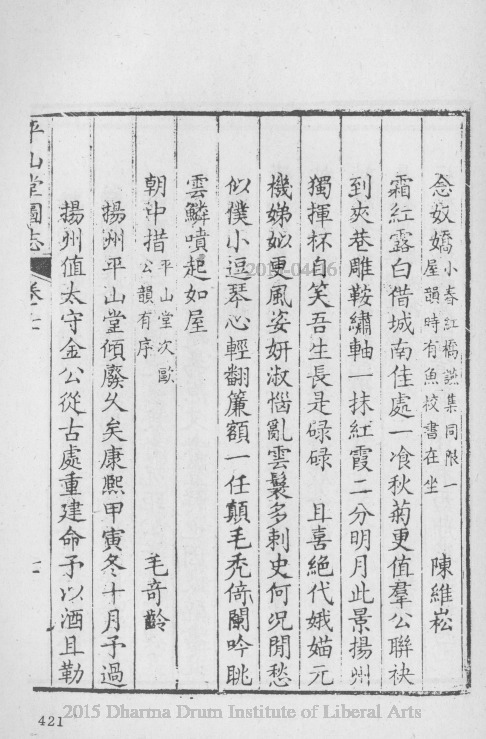 念奴嬌 小春紅橋讌集同限一屋韻時有魚校書在坐 陳維崧
霜紅露白借城南佳處一飡秋菊更值羣公聯袂
到夾巷雕鞍繡軸一抹紅霞二分明月此景揚州
獨揮杯自笑吾生長是碌碌 且喜絕代娥媌元
機娣姒更風姿妍淑惱亂雲鬟多刺史何況閒愁
似僕小逗琴心輕翻簾額一任顛毛禿倚闌吟眺
雲鱗噴起如屋
朝中措 平山堂次歐公韻有序 毛奇齡
揚州平山堂傾廢久矣康熙甲寅冬十月予過
揚州值太守金公從古處重建命予以酒且勒
平山堂圖志 卷十
421
2015 Dharma Drum Institute of Liberal Arts